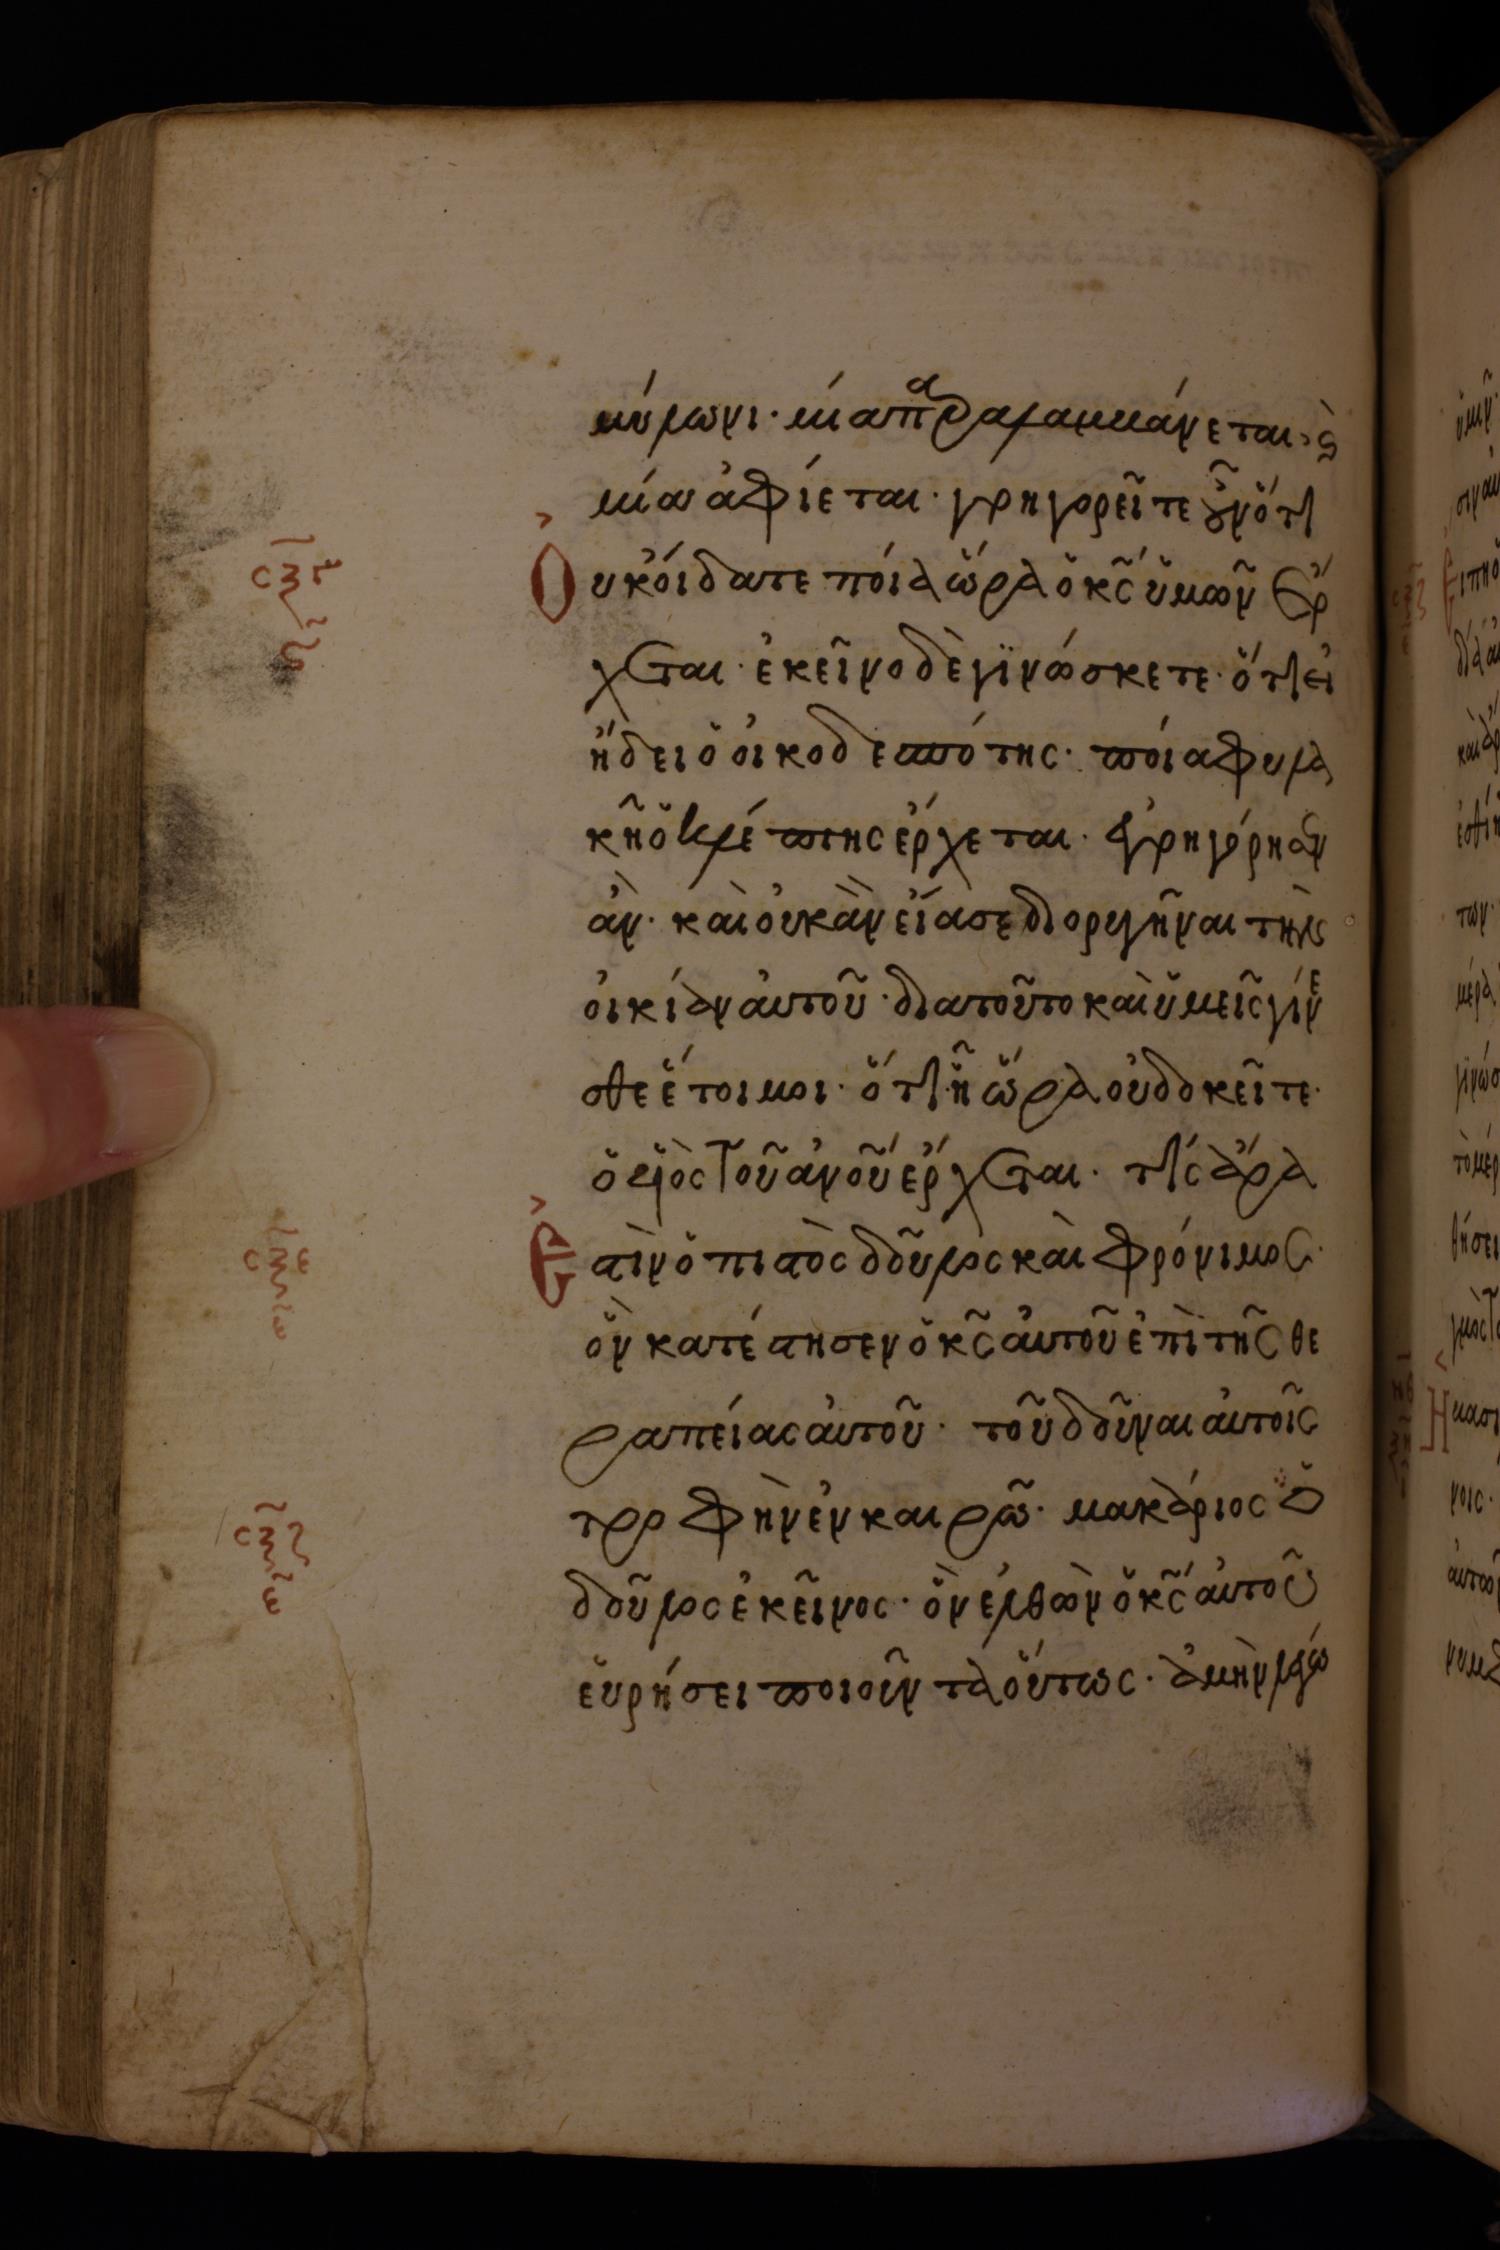 μύλωνι· μία παραλαμβάνεται· ϛ
μία ἀφίεται· γρηγορεῖτε οὖν ὅτι
Ουκ ὀίδατε πόια ὥρα ὁ κς̄ ὑμῶν ἔρ
χεται· ἐκεῖνο δὲ γϊνώσκετε· ὅτι εἰ
ἤδει ὁ οἰκοδεσπότης· ποία φυλα
κῆ ὁ κλέπτης ἔρχεται· ἐγρηγόρησεν
ἀν· καὶ οὐκ ἀν εἴασε διορυγῆναι τὴν
οἰκίαν ἀυτοῦ· δια τοῦτο καὶ ὑμεῖς γίνε
σθε ἕτοιμοι· ὅτι ἧ ὥρα οὐ δοκεῖτε·
ὁ υἱὸς τοῦ ἀνοῦ ἔρχεται· τίς ἄρα
Εστὶν ὁ πιστὸς δοῦλος καὶ φρόνιμος·
ὃν κατέστησεν ὁ κς̄ ἀυτοῦ ἐπὶ τῆς θε
ραπείας ἀυτοῦ· τοῦ δοῦναι ἀυτοῖς
τροφὴν ἐν καιρῶ· μακάριος ὁ
δοῦλος ἐκεῖνος· ὃν ἐλθὼν ὁ κς̄ ἀυτοῦ
ἑυρήσει ποιοῦντα ὅυτως· ἀμὴν λέγω